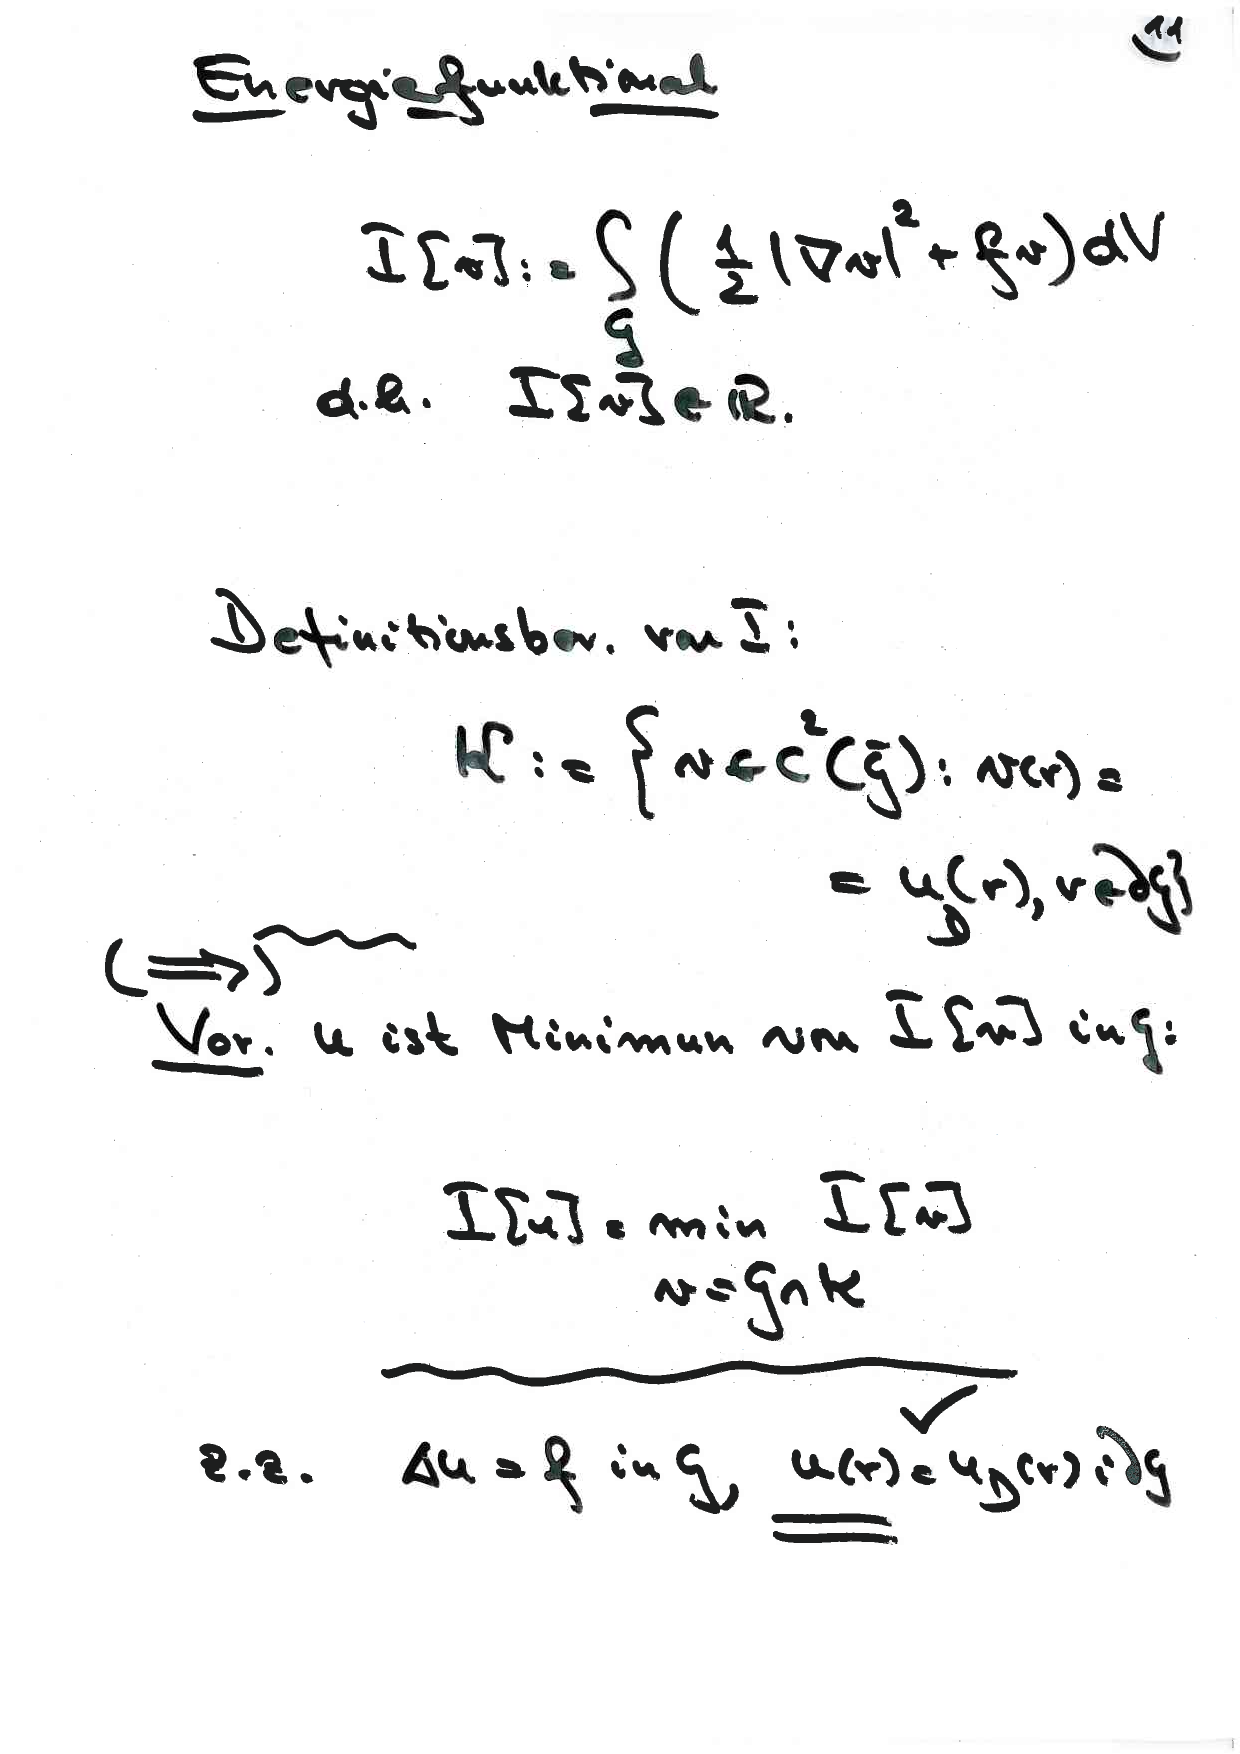 11
Energiefunktional
I[v] := ∫ ( 1/2 |∇v|² + fv ) dV
G
d.h. I[v] ∈ ℝ.
Definitionsber. von I:
K := { v ∈ C²(Ḡ) : v(r) =
= u_D(r), r ∈ ∂G}
(⟹)
Vor. u ist Minimum von I[v] in G:
I[u] = min I[v]
v = G ∩ K
✓
z.z. Δu = f in G, u(r) = u_D(r) i ∂G